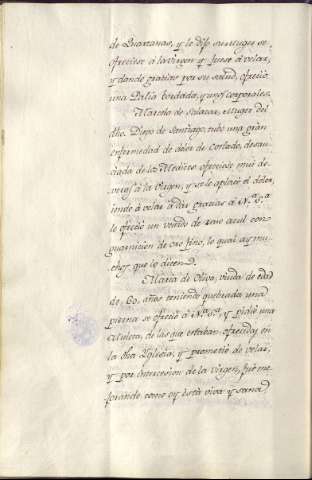 de Quartanas, y le dijo su muger se
ofreciese á la Virgen y fuese á velar,
y dando gracias por su salud, ofreció
una Palia bordada, y unos corporales.
Marcela de Salazar, muger del
dho Diego de Santiago, tubo una gran
enfermedad de dolor de Costado, desau
ciada de los Medicos ofreciose muy de
veras á la Virgen, y se le aplacó el dolor,
iendo á velar á dar gracias á N.ª S.ª
le ofreció un vestido de raso azul con
guarnicion de oro fino, lo qual ay mu
chos que lo dicen.
Maria de Oliva, viuda de edad
de 60. años teniendo quebrada una
pierna se ofreció á N.ª S.ª, y pidió una
de las que estaban ofrecidas en
la dha Yglesia, y prometió de velar,
y por intercesion de la Virgen, fué me
jorando como oy está viva y sana